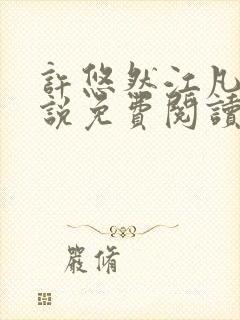 許悠然江凡
說免費閱讀
嚴脩